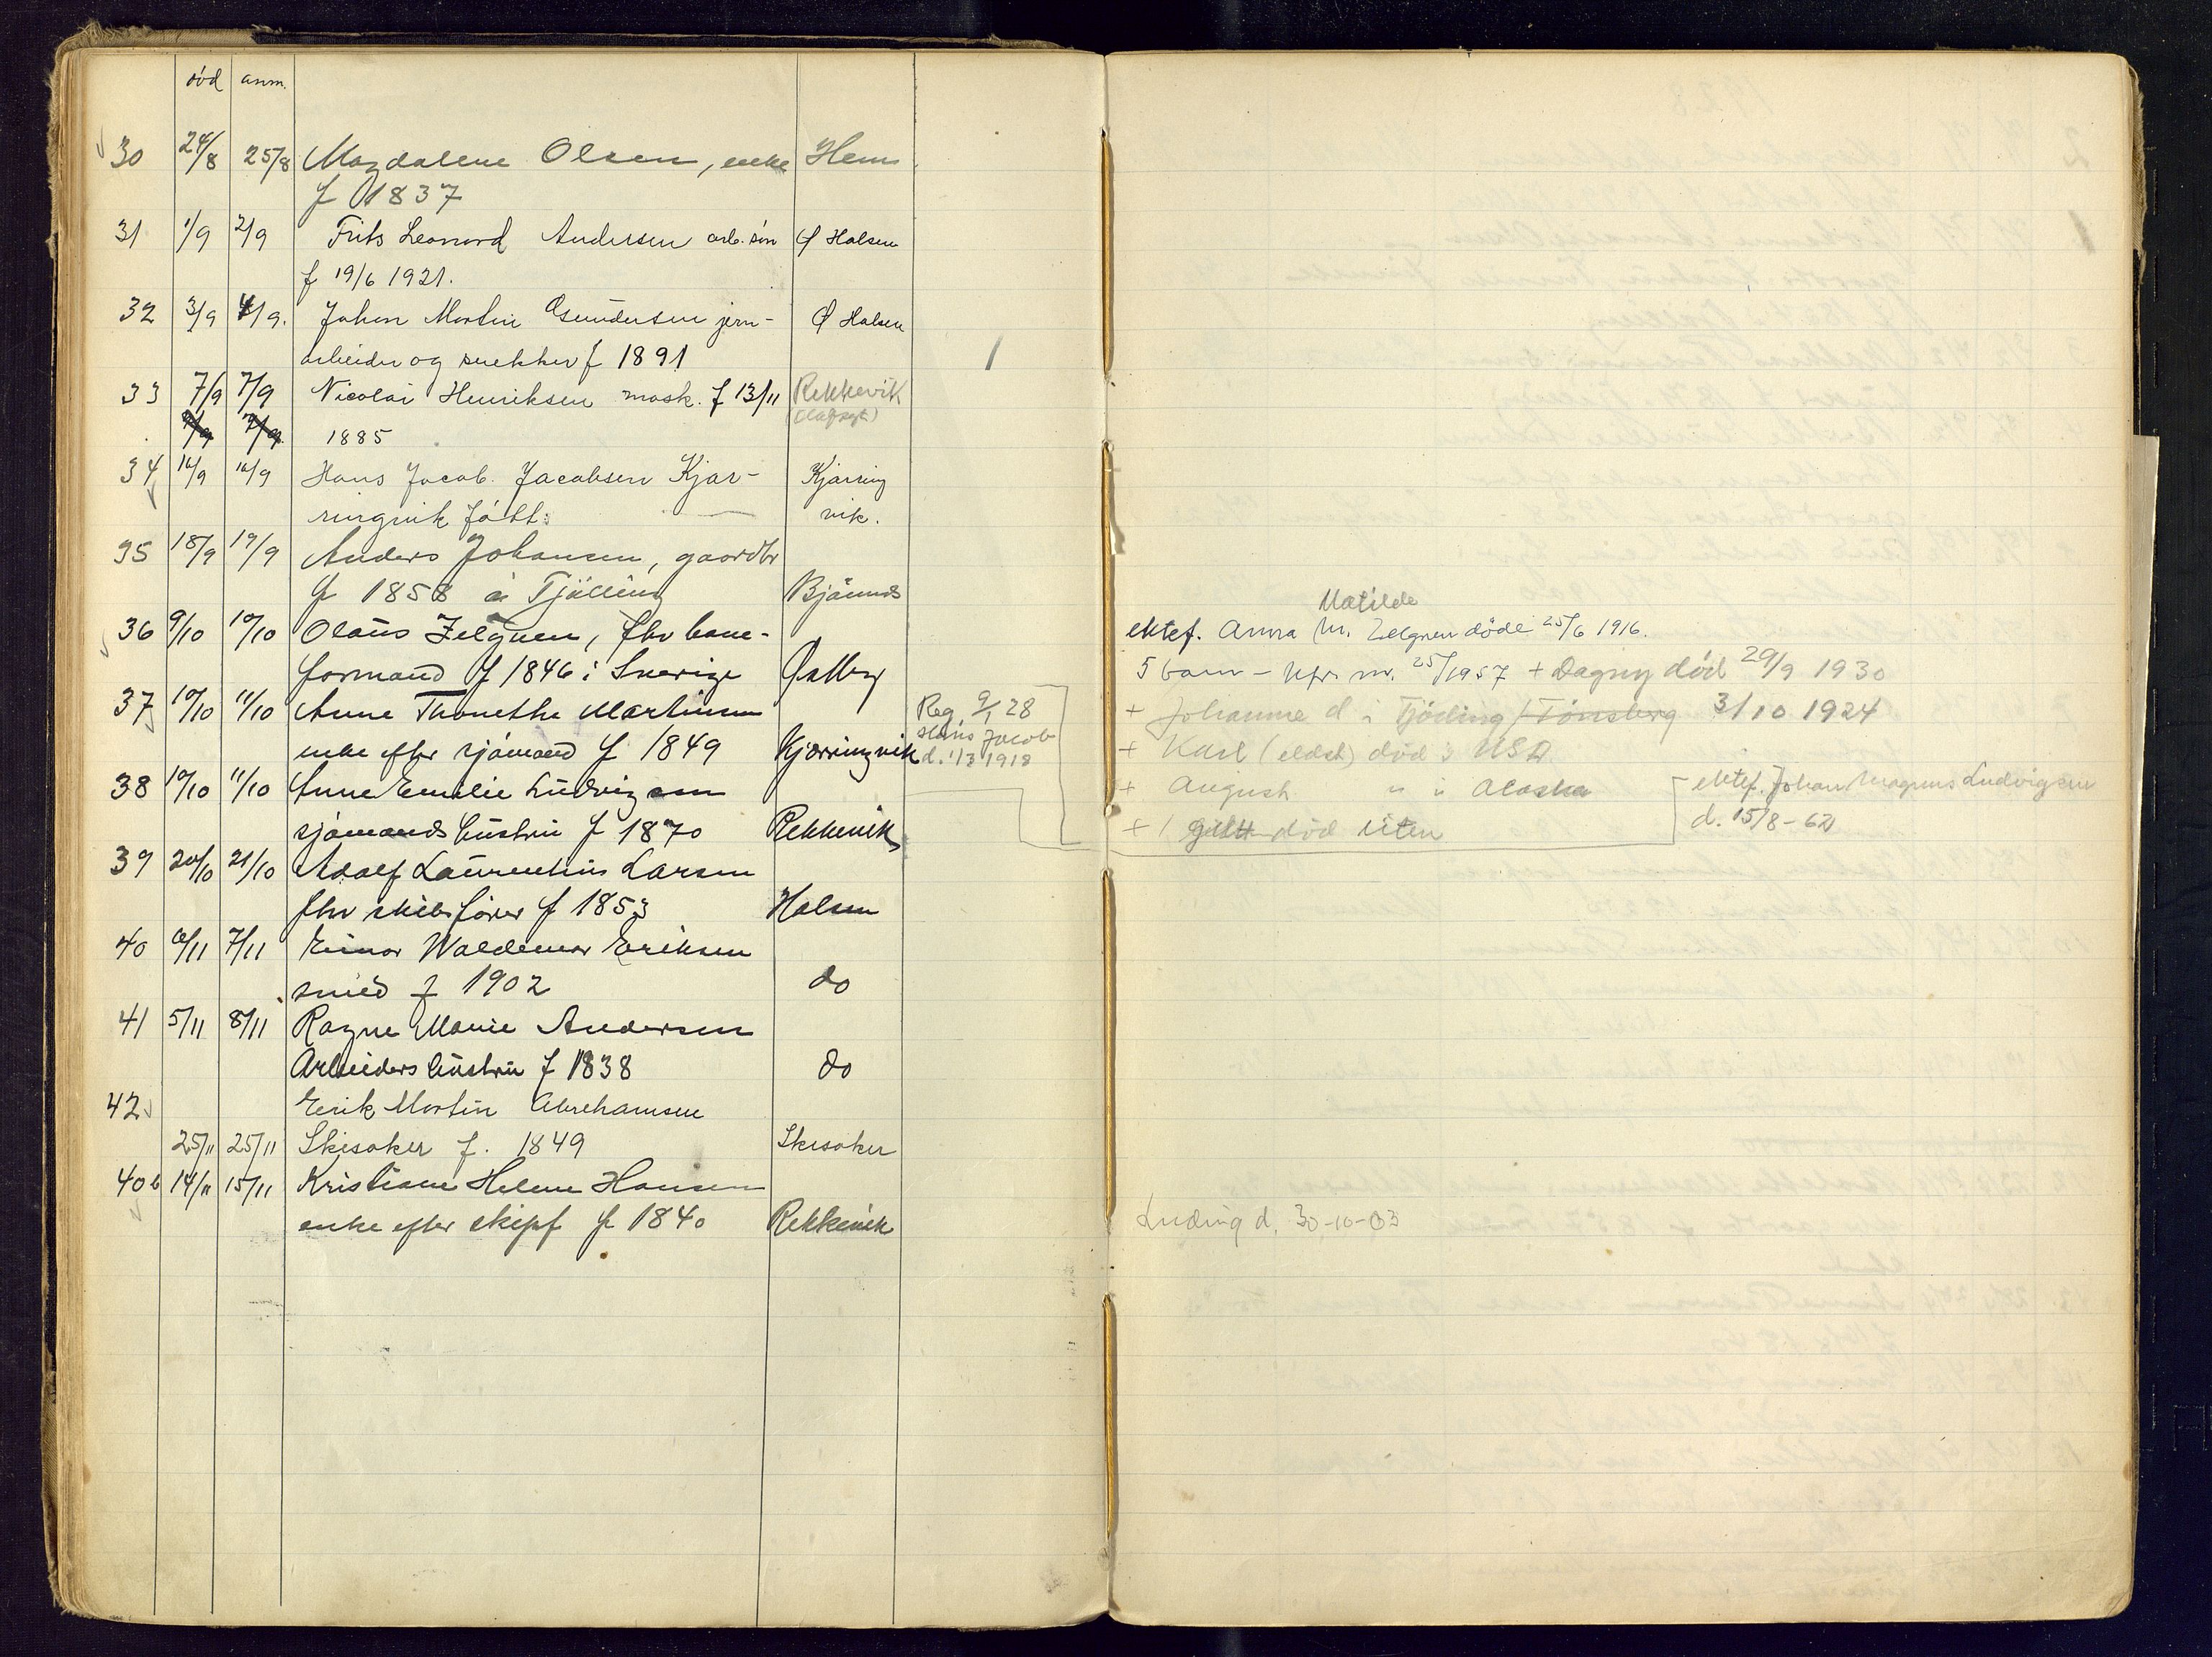 død anm.
30 24/8 25/8 Magdalene Olsen, enke Hem
f 1837
31 1/9 2/9 Frits Leonard Andersen arb. søn Ø Halsen
f 19/6 1921.
32 3/9 4/9. Johan Martin Gundersen jern- Ø Halsen
arbeider og snekker f 1891
33 7/9 7/9 Nicolai Henriksen mask. f 13/11 Rekkevik
7/9 7/9 1885
34 16/9 16/9 Hans Jacob Jacobsen Kjær- Kjærring
ringvik født: vik.
35 18/9 19/9 Anders Johansen, gaardbr
f 1858 i Tjølling Bjønnes
36 9/10 10/10 Olaus Zelgren, fhv bane-
formand f 1846 i Sverige Østby
37 10/10 11/10 Anne Thonethe Martinsen
enke efter sjømand f 1849 Kjærringvik
Reg. 9/1 28
Hans Jacob
d. 1/3 1918
38 10/10 11/10 Anne Emilie Ludvigsen
sjømands hustru f 1870 Rekkevik
39 20/10 21/10 Adolf Laurentius Larsen
fhv skibsfører f 1853 Halsen
40 6/11 7/11 Einar Waldemar Eriksen
smed f 1902 do
41 5/11 8/11 Ragne Marie Andersen
Arbeiders hustru f 1838 do
42 Erik Martin Abrahamsen
25/11 25/11 Skisaker f. 1849 Skisaker
40b 14/11 15/11 Kristiane Helene Hansen
enke efter skipf f 1840 Rekkevik
Matilde
ektef. Anna M. Zelgren døde 25/6 1916.
5 barn - 25/1957 + Dagny død 29/9 1930
+ Johanne d i Tjølling / Tønsberg 3/10 1924
+ Karl (eldst) død i USA
+ August " i Alaska
+ 1 gutt død liten
ektef. Johan Magnus Ludvigsen
d. 15/8-62
Ludvig d. 30-10-03